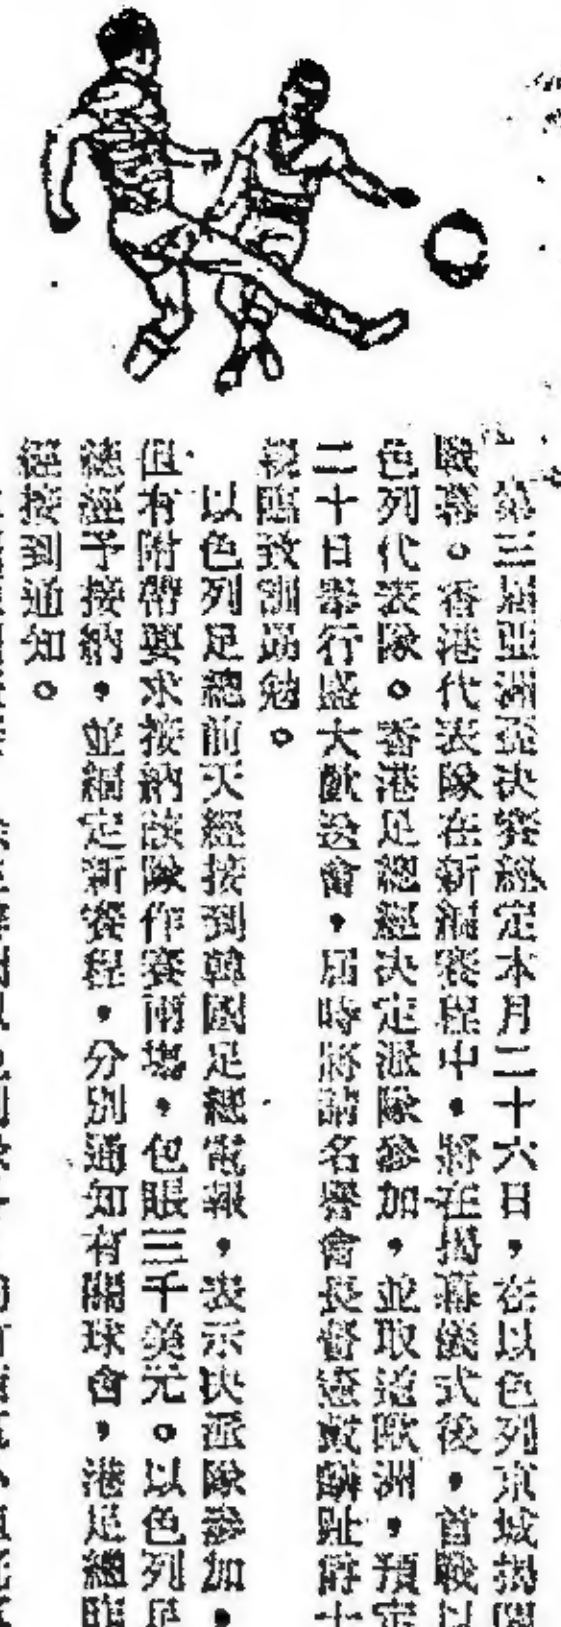 第三屆亞洲盃決賽經定本月二十六日，在以色列京城揭開
戰幕。香港代表隊在新編賽程中，將在揭幕儀式後，首戰以
色列代表隊。香港足總經決定派隊參加，並取道歐洲，預定
二十日舉行盛大歡送會，屆時將請名譽會長督憲戴麟趾爵士
親臨致訓勗勉。
以色列足總前天經接到韓國足總電報，表示決派隊參加，
但有附帶要求接納該隊作賽兩場，包賬三千美元。以色列足
總經予接納，並編定新賽程，分別通知有關球會，港足總昨
經接到通知。